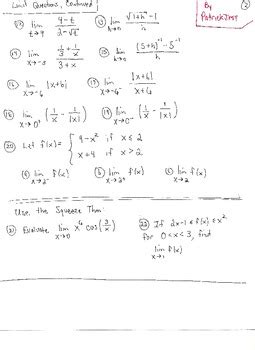 Limit Questions, Continued
By PatrickJMT
②
⑫ lim t→9 (9-t)/(2-√t)
⑬ lim h→0 (√(1+h) - 1)/h
⑭ lim x→-3 (1/3 + 1/x)/(3+x)
⑮ lim h→0 ((5+h)⁻¹ - 5⁻¹)/h
⑯ lim x→-6 |x+6|
⑰ lim x→-6 |x+6|/(x+6)
⑱ lim x→0⁺ (1/x - 1/|x|)
⑲ lim x→0⁻ (1/x - 1/|x|)
⑳ Let f(x) = { 9-x² if x ≤ 2
x+4 if x > 2
ⓐ lim x→2⁻ f(x) ⓑ lim x→2⁺ f(x) ⓒ lim x→2 f(x)
Use the Squeeze Thm:
㉑ Evaluate lim x→0 x⁶ cos(3/x)
㉒ If 2x-1 ≤ f(x) ≤ x²
for 0<x<3, find
lim x→1 f(x)